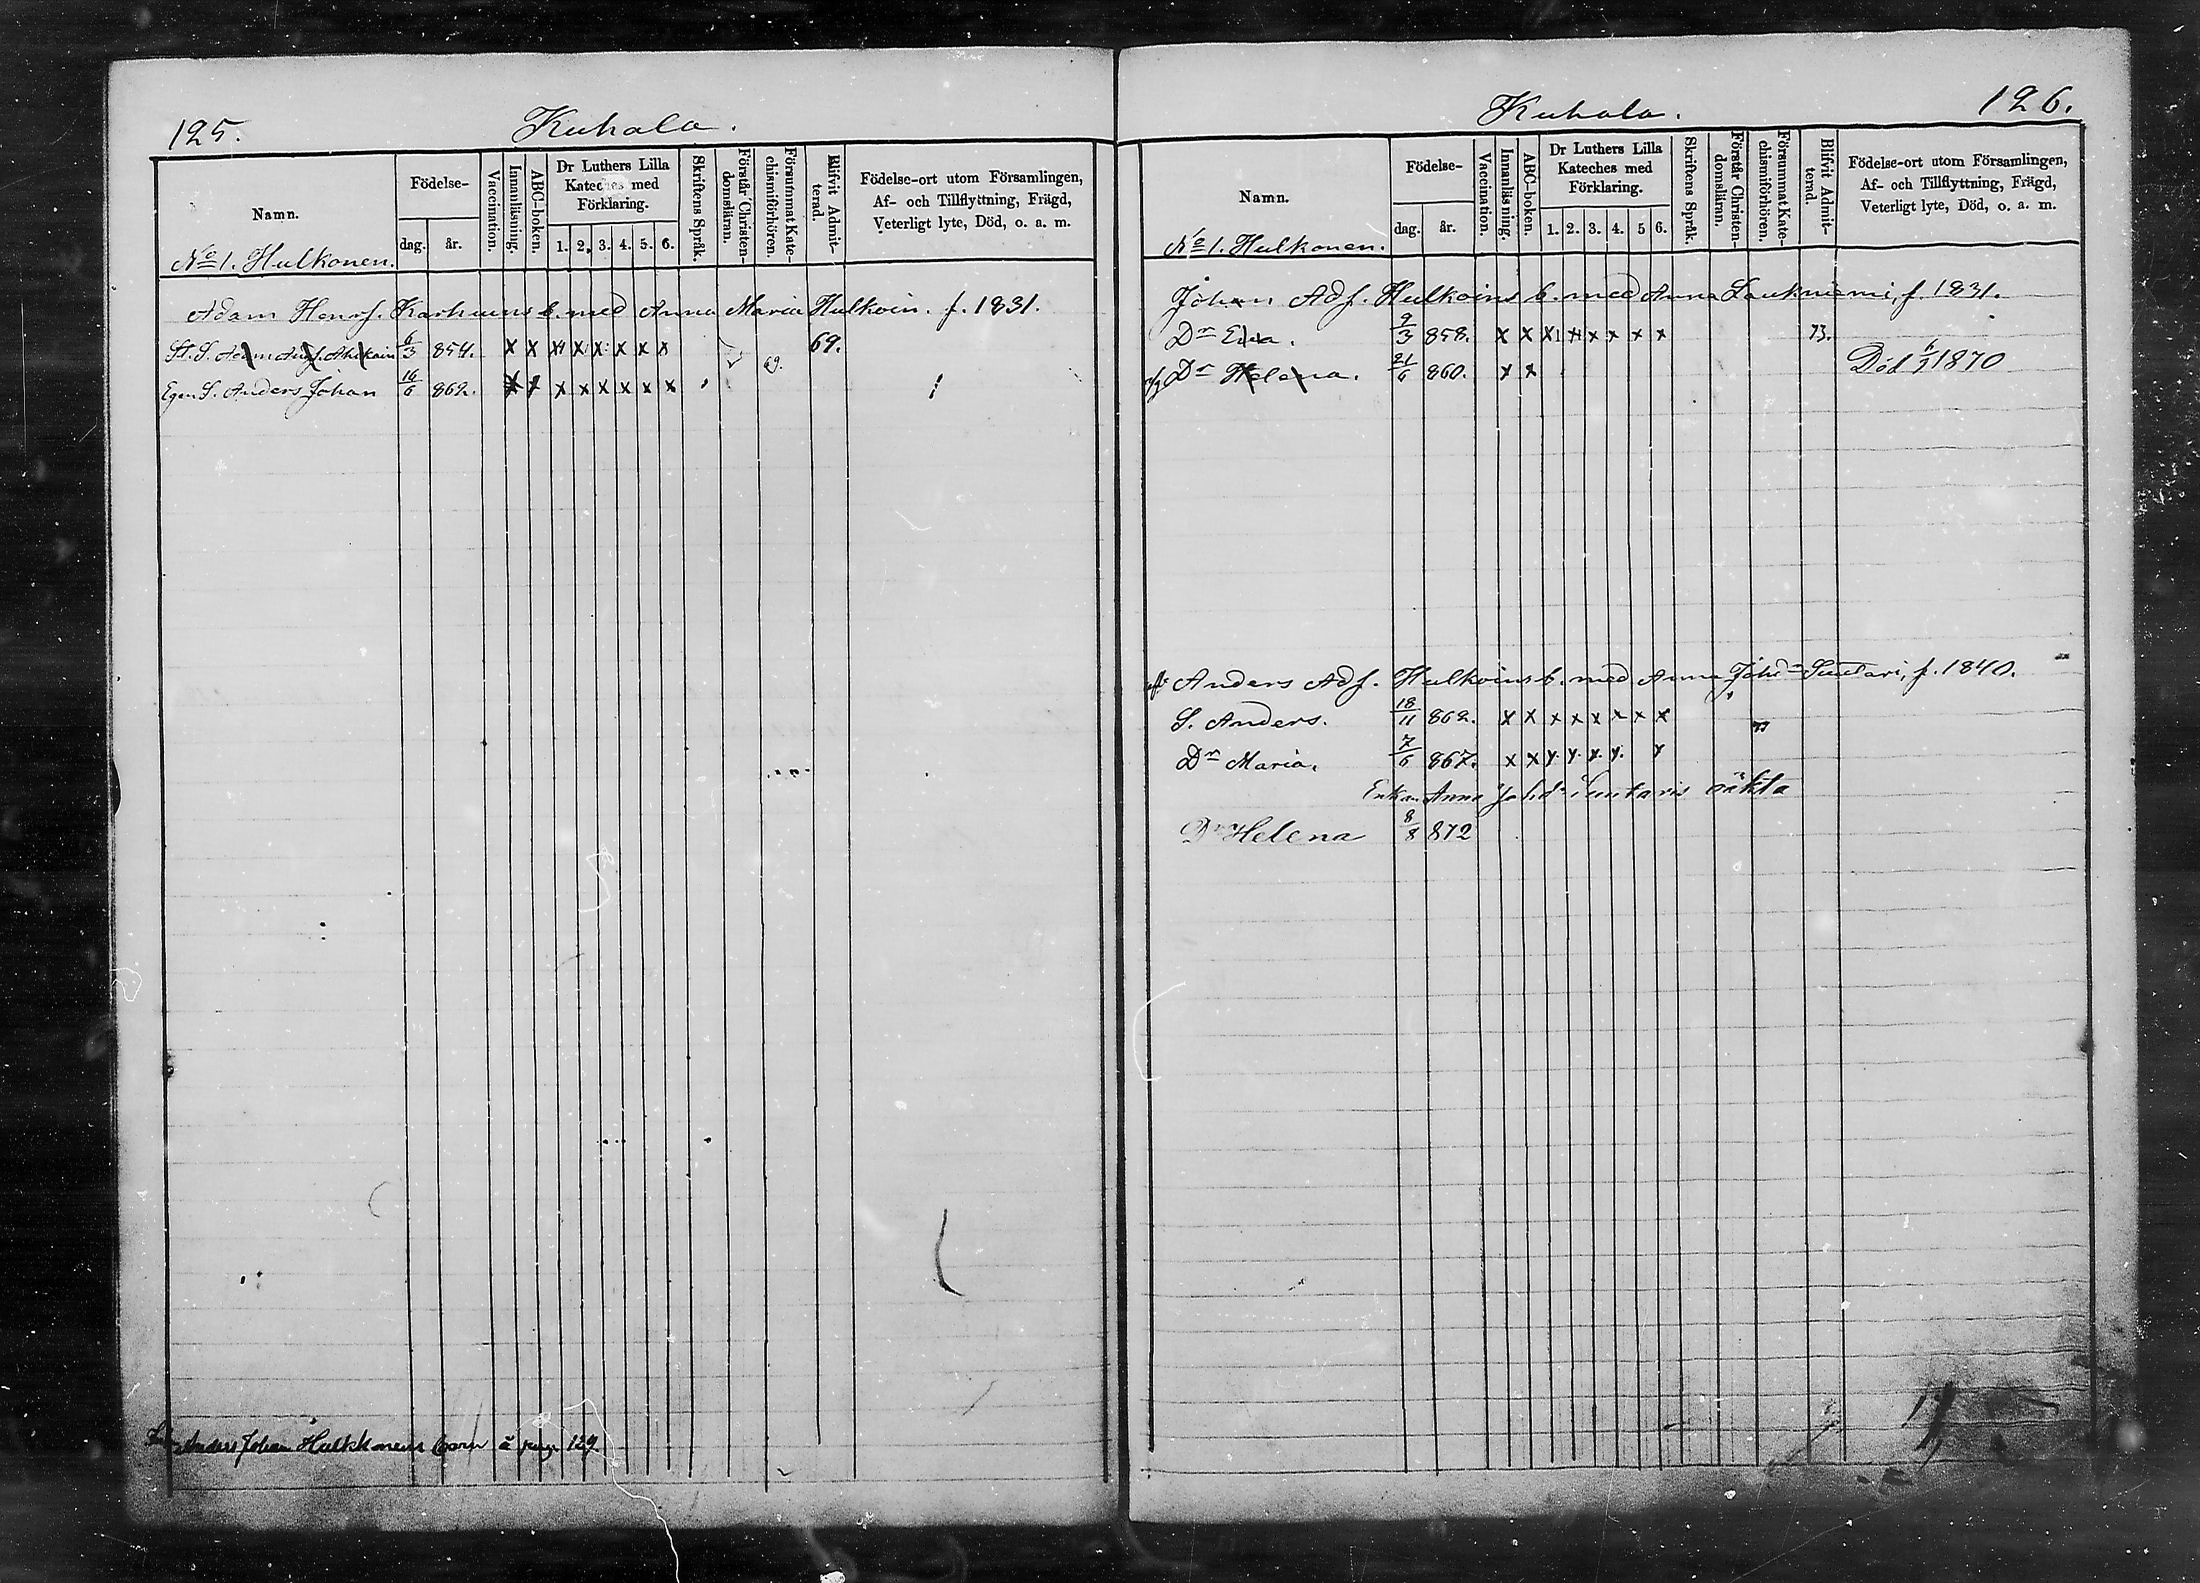 125.
Kuhala.
Namn.
Födelse-
dag.
år.
Vaccination.
Innanläsning.
ABC-boken.
Dr Luthers Lilla
Kateches med
Förklaring.
1. 2. 3. 4. 5. 6.
Skriftens Språk.
Förstår Christen-
domsläran.
Försummat Kate-
chismiförhören.
Blifvit Admit-
terad.
Födelse-ort utom Församlingen,
Af- och Tillflyttning, Frägd,
Veterligt lyte, Död, o. a. m.
No 1. Hulkonen.
Adam Henrs. Karhuns b. med Anna Maria Hulkoin. f. 1831.
St. S. 6/3 854. x x x x x x x x 69. 69.
Egen S. Anders Johan 16/6 862. x x x x x x x x
Anders Johan Hulkkonens barn å pag 129.
126.
Kuhala.
Namn.
Födelse-
dag.
år.
Vaccination.
Innanläsning.
ABC-boken.
Dr Luthers Lilla
Kateches med
Förklaring.
1. 2. 3. 4. 5 6.
Skriftens Språk.
Förstår Christen-
domsläran.
Försummat Kate-
chismiförhören.
Blifvit Admit-
terad.
Födelse-ort utom Församlingen,
Af- och Tillflyttning, Frägd,
Veterligt lyte, Död, o. a. m.
No 1. Hulkonen.
Johan Ads. Hulkoins b. med Anna Laukniemi, f. 1831.
Dr Eva. 9/3 858. x x x x x x x x 73.
Dr Helena. 21/6 860. x x Död 1870
Anders Ads. Hulkoins b. med Anna Johsdr Suutari, f. 1840.
S. Anders. 18/11 862. x x x x x x x x
Dr Maria. 7/6 867. x x x x x x x
Enkan Anna Johdr Suutaris oäkta
Dr Helena 8/8 872